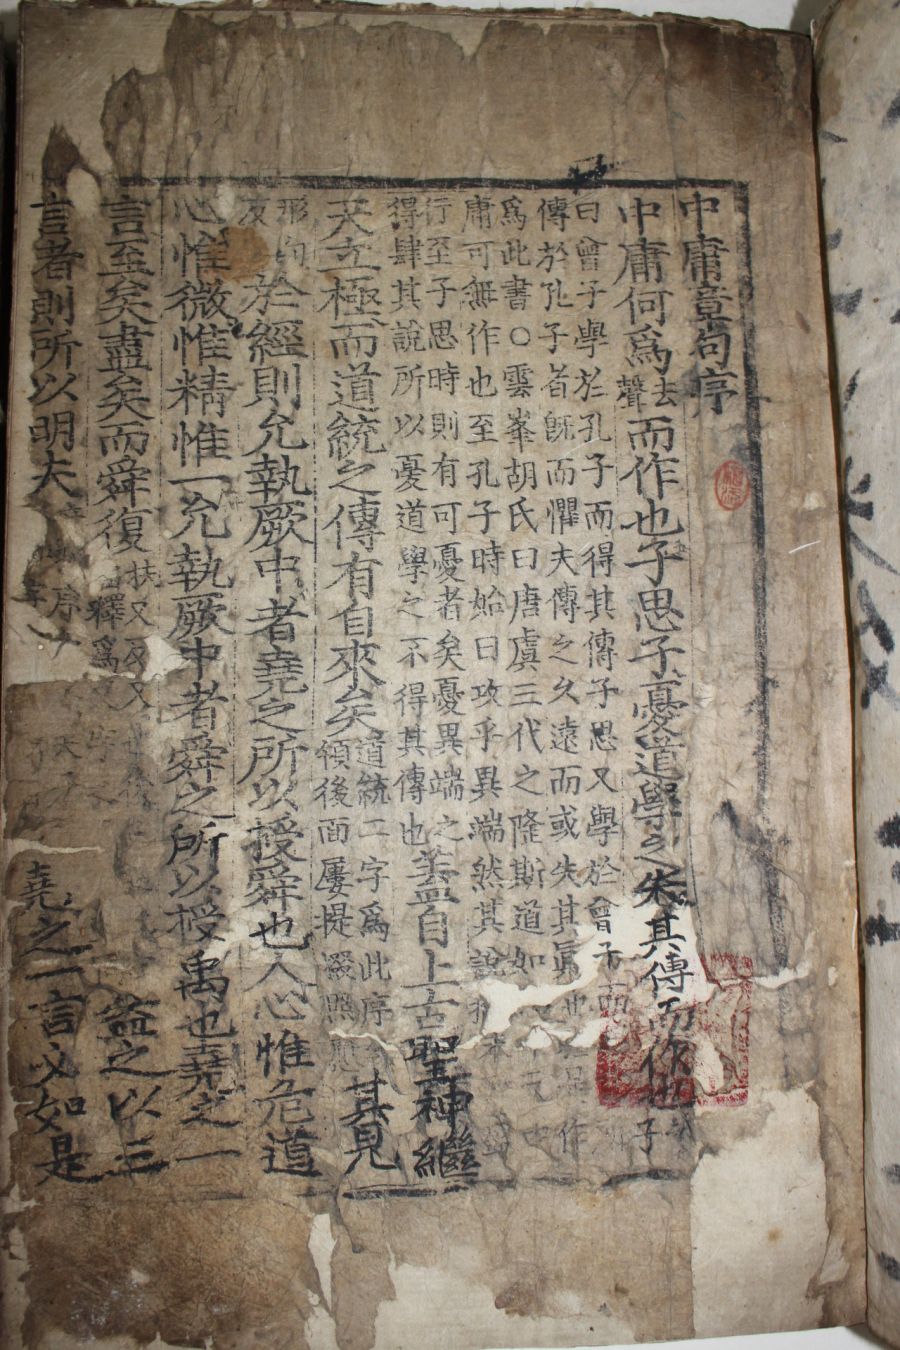 中庸章句序
中庸何爲去聲而作也子思子憂道學之失其傳而作也子
曰曾子學於孔子而得其傳子思又學於曾子而
傳於孔子者旣而懼夫傳之久遠而或失其眞也
爲此書○雲峯胡氏曰唐虞三代之隆斯道如
庸可無作也至孔子時始曰攻乎異端然其說
行至子思時則有可憂者矣憂異端之
得肆其說所以憂道學之不得其傳也
蓋自上古聖神繼
天立極而道統之傳有自來矣
道統二字爲此序
領後面屢提掇照應
其見
形甸
反
於經則允執厥中者堯之所以授舜也人心惟危道
心惟微惟精惟一允執厥中者舜之所以授禹也堯之一
言至矣盡矣而舜復
扶又反又
釋爲
益之以三
言者則所以明夫
堯之一言必如是